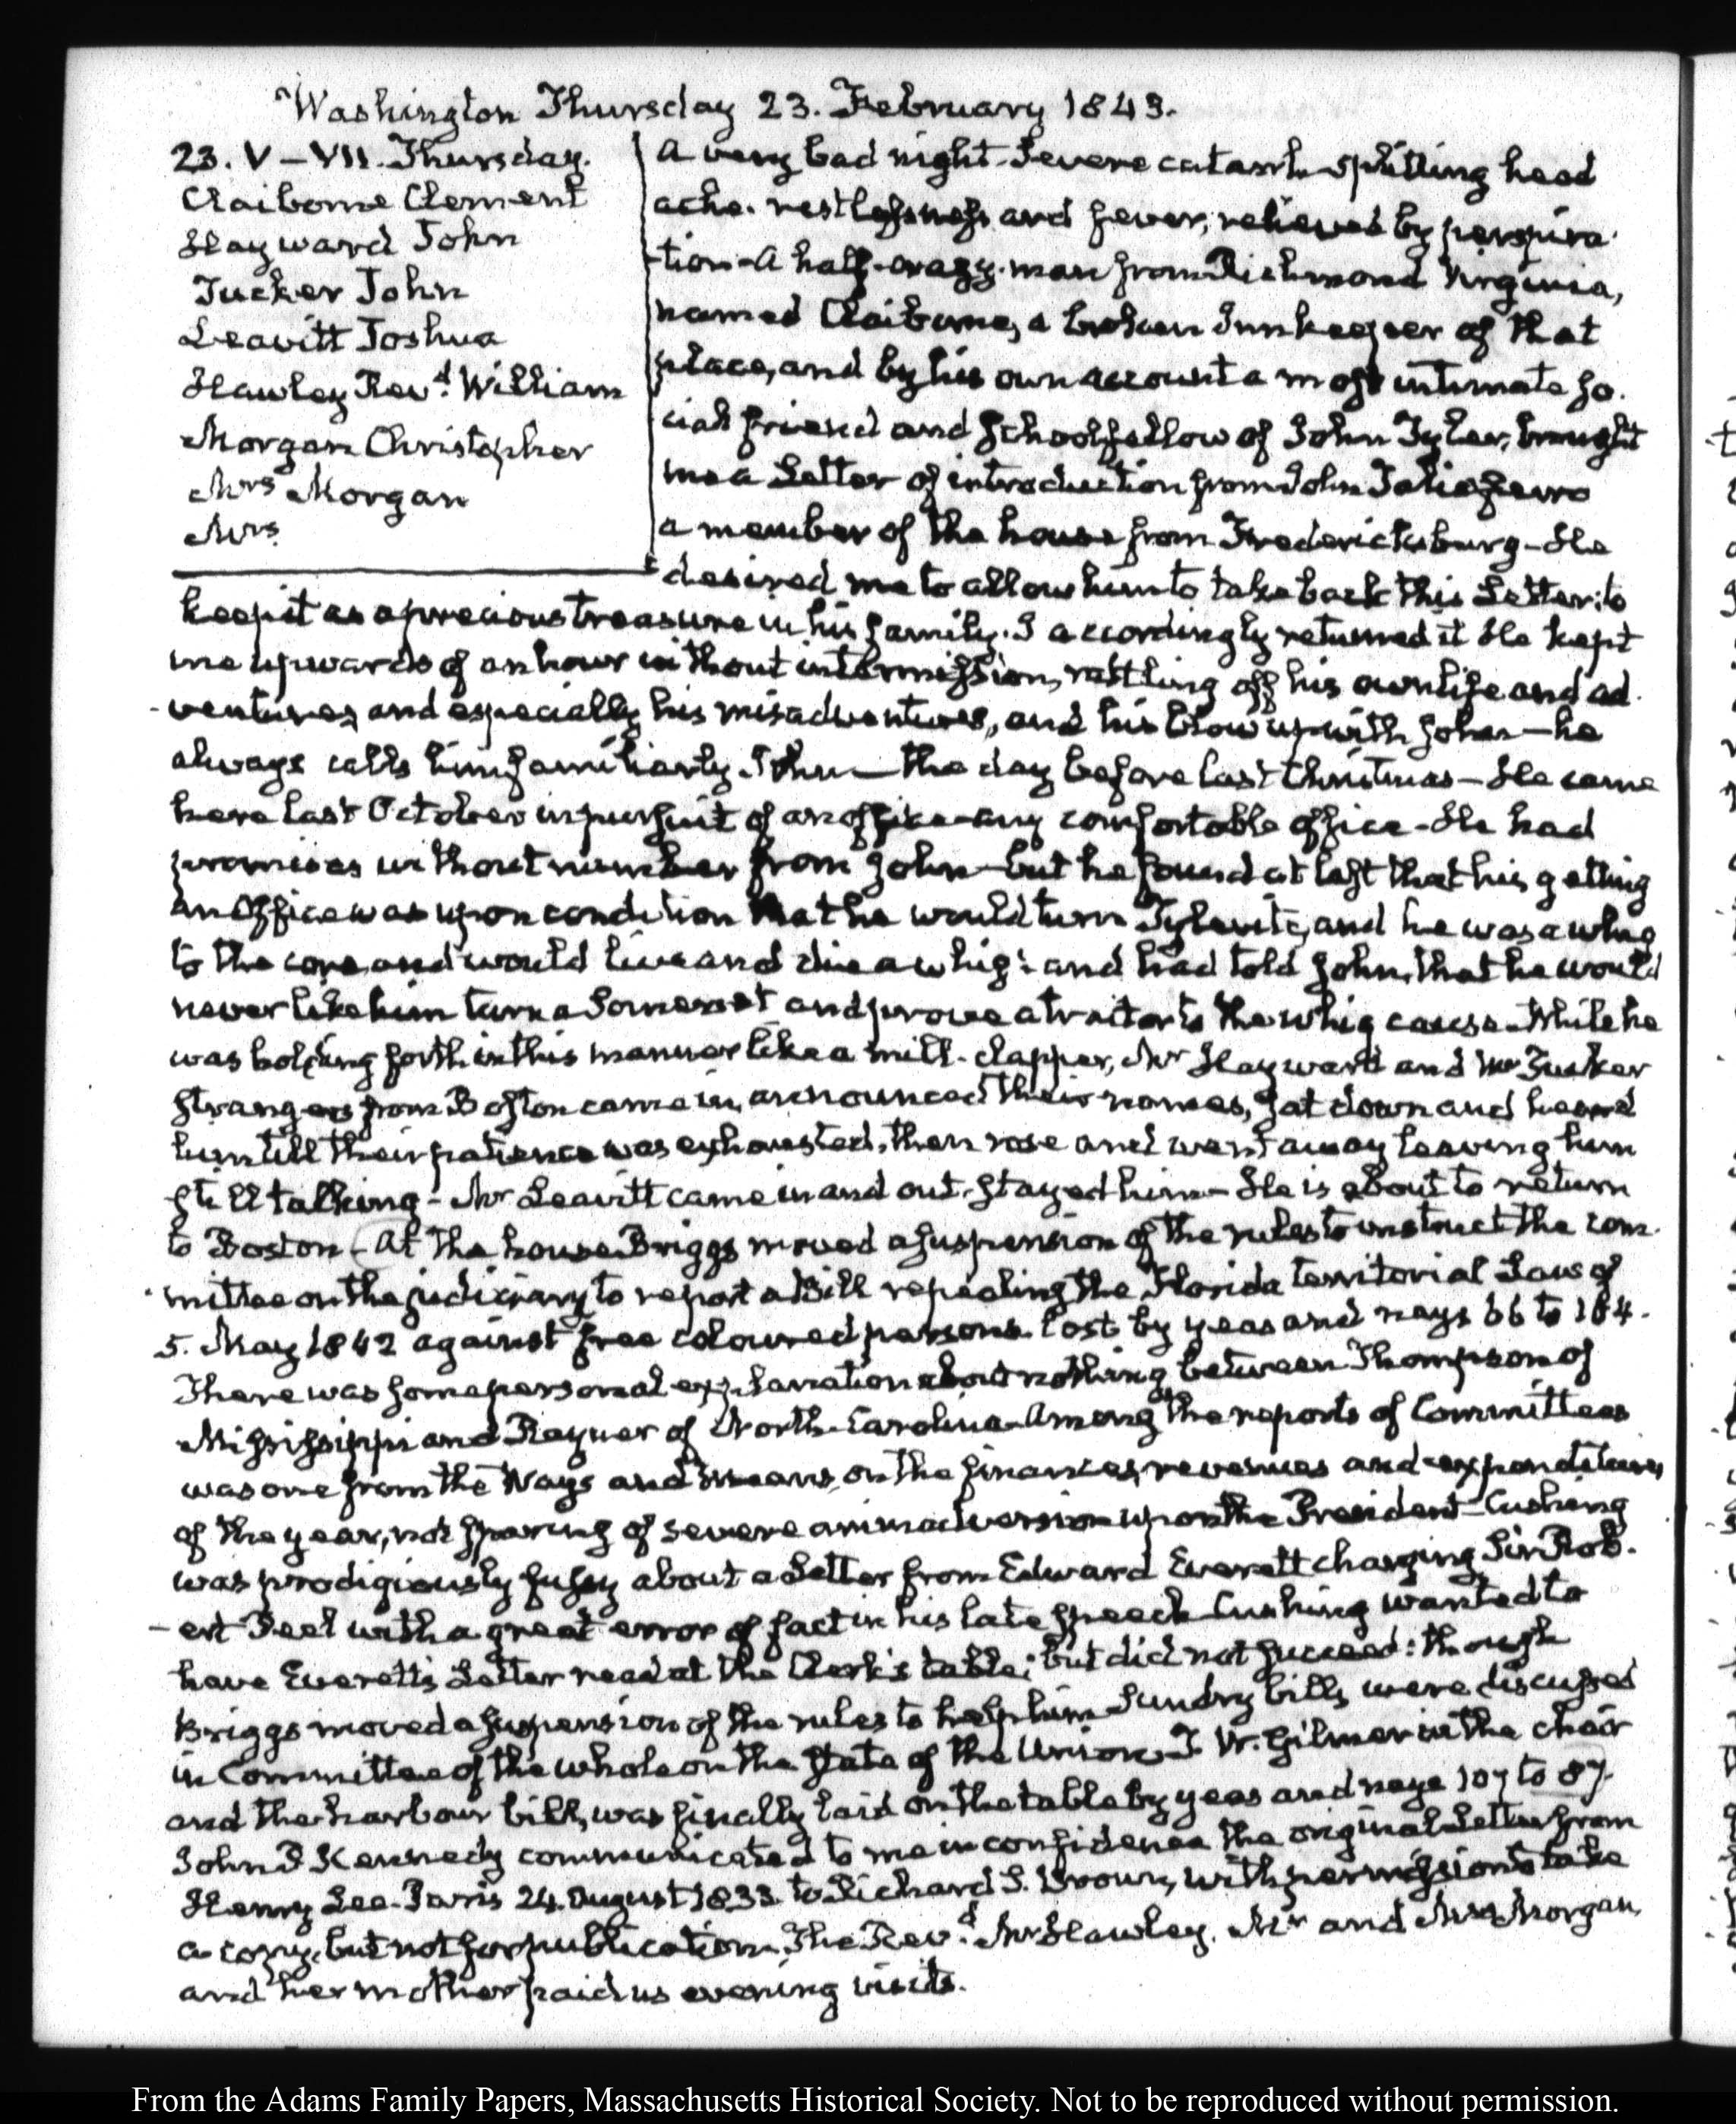 Washington Thursday 23. February 1843.
23. V–VII. Thursday.
Claiborne Clement
Hayward John
Tucker John
Leavitt Joshua
Hawley Revd. William
Morgan Christopher
Mrs Morgan
Mrs
A very bad night. Severe catarrh splitting head
ache. restlessness and fever, relieved by perspira
-tion - A half-crazy man from Richmond Virginia,
named Claiborne, a broken Innkeeper of that
place, and by his own account a most intimate so.
cial friend and schoolfellow of John Tyler, brought
me a Letter of introduction from John Taliaferro
a member of the house from Fredericksburg - He
desired me to allow him to take back this Letter: to
keep it as a precious treasure in his family. I accordingly returned it He kept
me upwards of an hour without intermission, rattling off his own life and ad.
-ventures, and especially his misadventures, and his blow up with John — he
always calls him familiarly John — the day before last Christmas — He came
here last October in pursuit of an office - any comfortable office - He had
promises without number from John - but he found at last that his getting
an Office was upon condition that he would turn Tylerite, and he was a whig
to the core, and would live and die a whig: and had told John, that he would
never like him turn a Somerset and prove a traitor to the whig cause. While he
was bolting forth in this manner like a mill-clapper, Mr Hayward and Mr Tucker
strangers from Boston came in, announced their names, sat down and heard
him till their patience was exhausted, then rose and went away leaving him
still talking - Mr Leavitt came in and out-stayed him - He is about to return
to Boston - At the house Briggs moved a suspension of the rules to instruct the com.
mittee on the judiciary to report a Bill repealing the Florida territorial Law of
5. May 1842 against free coloured persons. Lost by yeas and nays 66 to 104.
There was some personal explanation about nothing between Thompson of
Mississippi and Rayner of North-Carolina. Among the reports of Committees
was one from the Ways and Means, on the finances, revenues and expenditures
of the year, not sparing of severe animadversion upon the President - Cushing
was prodigiously fussy about a Letter from Edward Everett charging Sir Rob.
-ert Peel with a great error of fact in his late speech Cushing wanted to
have Everett's Letter read at the Clerk's table; but did not succeed: though
Briggs moved a suspension of the rules to help him Sundry bills were discussed
in Committee of the whole on the State of the Union T. W. Gilmer in the chair
and the harbour bill, was finally laid on the table by yeas and nays 107 to 87.
John P Kennedy communicated to me in confidence the original Letter from
Henry Lee. Paris 24. August 1833. to Richard T. Brown, with permission to take
a copy, but not for publication. The Revd. Mr Hawley, Mr and Mrs Morgan,
and her mother paid us evening visits.
From the Adams Family Papers, Massachusetts Historical Society. Not to be reproduced without permission.